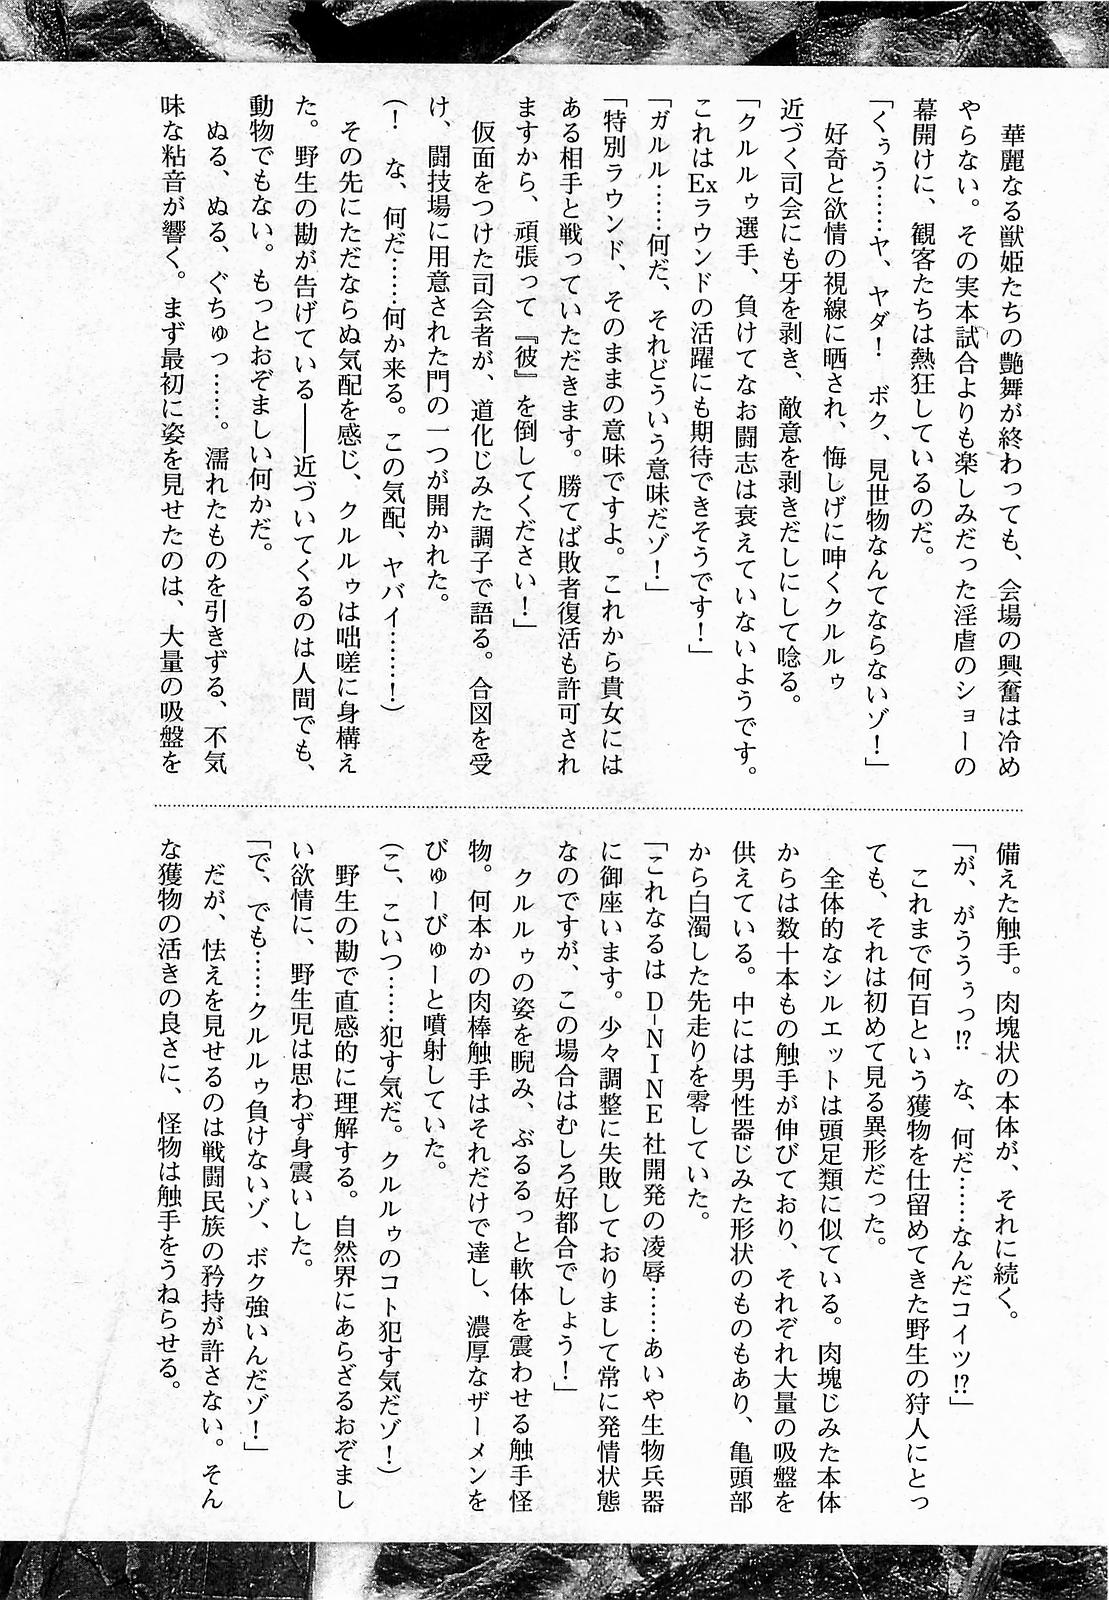 華麗なる獣姫たちの艶舞が終わっても、会場の興奮は冷め
やらない。その実本試合よりも楽しみだった淫虐のショーの
幕開けに、観客たちは熱狂しているのだ。
「くぅう……ヤ、ヤダ！　ボク、見世物なんてならないゾ！」
好奇と欲情の視線に晒され、悔しげに呻くクルルゥ
近づく司会にも牙を剥き、敵意を剥きだしにして唸る。
「クルルゥ選手、負けてなお闘志は衰えていないようです。
これはＥxラウンドの活躍にも期待できそうです！」
「ガルル……何だ、それどういう意味だゾ！」
「特別ラウンド、そのままの意味ですよ。これから貴女には
ある相手と戦っていただきます。勝てば敗者復活も許可され
ますから、頑張って『彼』を倒してください！」
仮面をつけた司会者が、道化じみた調子で語る。合図を受
け、闘技場に用意された門の一つが開かれた。
（！　な、何だ……何か来る。この気配、ヤバイ……！）
その先にただならぬ気配を感じ、クルルゥは咄嗟に身構え
た。野生の勘が告げている――近づいてくるのは人間でも、
動物でもない。もっとおぞましい何かだ。
ぬる、ぬる、ぐちゅっ……。濡れたものを引きずる、不気
味な粘音が響く。まず最初に姿を見せたのは、大量の吸盤を
備えた触手。肉塊状の本体が、それに続く。
「が、がううぅっ!?　な、何だ……なんだコイツ!?」
これまで何百という獲物を仕留めてきた野生の狩人にとっ
ても、それは初めて見る異形だった。
全体的なシルエットは頭足類に似ている。肉塊じみた本体
からは数十本もの触手が伸びており、それぞれ大量の吸盤を
供えている。中には男性器じみた形状のものもあり、亀頭部
から白濁した先走りを零していた。
「これなるはD-NINE社開発の凌辱……あいや生物兵器
に御座います。少々調整に失敗しておりまして常に発情状態
なのですが、この場合はむしろ好都合でしょう！」
クルルゥの姿を睨み、ぶるるっと軟体を震わせる触手怪
物。何本かの肉棒触手はそれだけで達し、濃厚なザーメンを
びゅーびゅーと噴射していた。
（こ、こいつ……犯す気だ。クルルゥのコト犯す気だゾ！）
野生の勘で直感的に理解する。自然界にあらざるおぞまし
い欲情に、野生児は思わず身震いした。
「で、でも……クルルゥ負けないゾ、ボク強いんだゾ！」
だが、怯えを見せるのは戦闘民族の矜持が許さない。そん
な獲物の活きの良さに、怪物は触手をうねらせる。